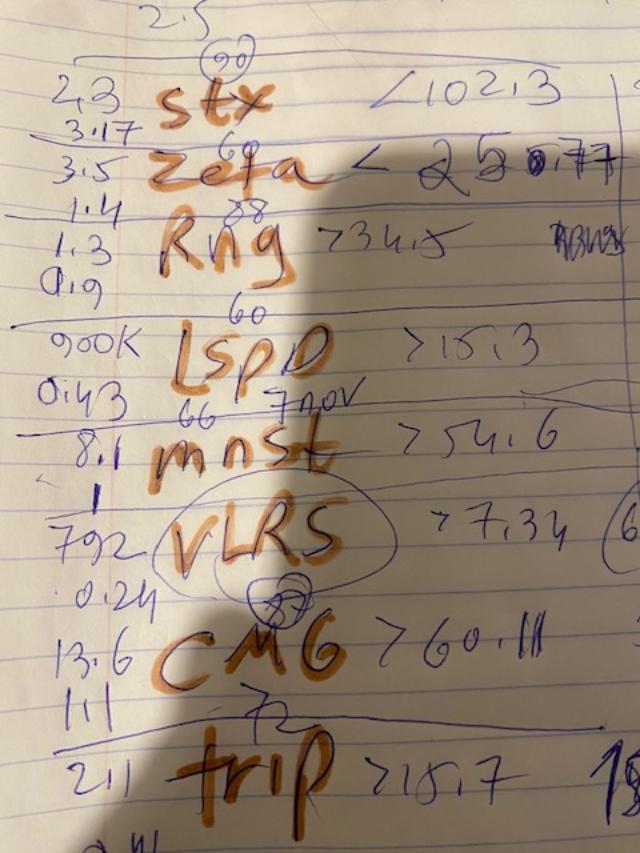 2.5
90
2,3 stx <102.3
3.17 60
3.5 Zeta < 25 .77
1.4 88
1.3 Rng >34.5
0.9
60
900K LSPD >15.3
0.43 66 7 nov
8.1 mnst >54.6
1
792 VLRS >7.34 6
0.24
87
13.6 CMG >60.11
1.1 72
2.1 trip >15.7